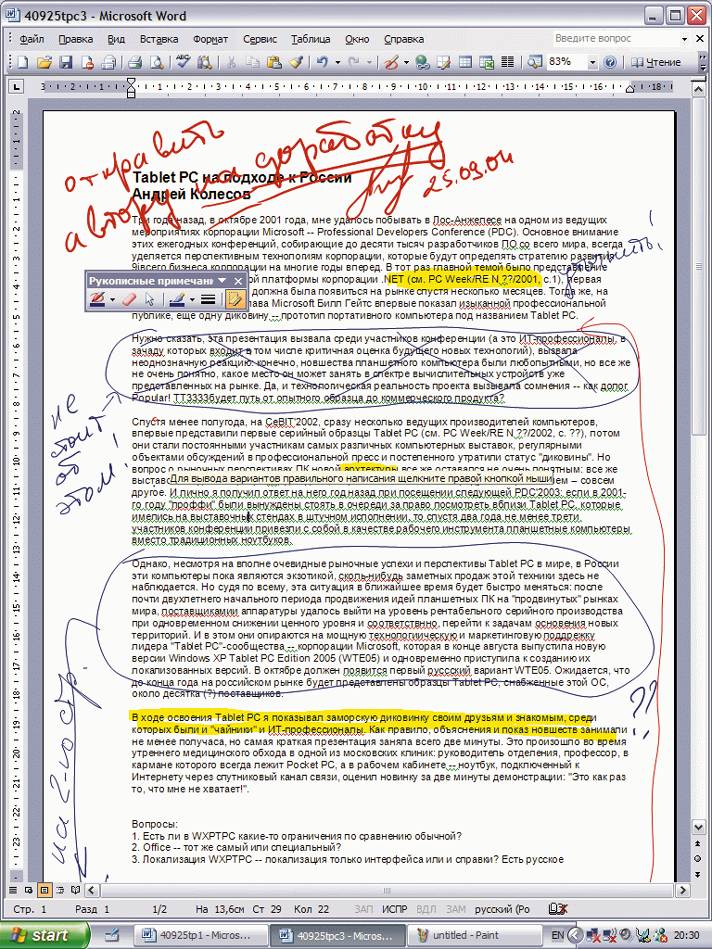 40925tpc3 - Microsoft Word
Файл Правка Вид Вставка Формат Сервис Таблица Окно Справка Введите вопрос
83% Чтение
отправить
автору на доработку
25.09.04
Tablet PC на подходе к России
Андрей Колесов
Три года назад, в октябре 2001 года, мне удалось побывать в Лос-Анжелесе на одном из ведущих
мероприятиях корпорации Microsoft -- Professional Developers Conference (PDC). Основное внимание
этих ежегодных конференций, собирающие до десяти тысяч разработчиков ПО со всего мира, всегда
уделяется перспективным технологиям корпорации, которые будут определять стратегию развития
9ивсего бизнеса корпорации на многие годы вперед. В тот раз главной темой было представление
ой платформы корпорации .NET (см. PC Week/RE N_??/2001, с.1), первая
должна была появиться на рынке спустя несколько месяцев. Тогда же, на
лава Microsoft Билл Гейтс впервые показал изыканной профессиональной
публике, еще одну диковину -- прототип портативного компьютера под названием Tablet PC.
Рукописные примечан
удалить!
Нужно сказать, эта презентация вызвала среди участников конференции (а это ИТ-профессионалы, в
зачаду которых входит в том числе критичная оценка будущего новых технологий), вызвала
неоднозначную реакцию: конечно, новшества планшетного компьютера были любопытными, но все же
не очень понятно, какое место он может занять в спектре вычислительных устройств уже
представленных на рынке. Да, и технологическая реальность проекта вызывала сомнения -- как долог
Popular! ТТ3333будет путь от опытного образца до коммерческого продукта?
не
стоит
об
этом!
Спустя менее полугода, на CeBIT'2002, сразу несколько ведущих производителей компьютеров,
впервые представили первые серийный образцы Tablet PC (см. PC Week/RE N_??/2002, с. ??), потом
они стали постоянными участникам самых различных компьютерных выставок, регулярными
объектами обсуждений в профессиональной пресс и постепенного утратили статус "диковины". Но
вопрос о рыночных перспективах ПК новой архтектуры все же оставался не очень понятным: все же
выставо
Для вывода вариантов правильного написания щелкните правой кнопкой мыши
ем – совсем
другое. И лично я получил ответ на него год назад при посещении следующей PDC'2003: если в 2001-
го году "проффи" были вынуждены стоять в очереди за право посмотреть вблизи Tablet PC, которые
имелись на выставочных стендах в штучном исполнении, то спустя два года не менее трети
участников конференции привезли с собой в качестве рабочего инструмента планшетные компьютеры
вместо традиционных ноутбуков.
Однако, несмотря на вполне очевидные рыночные успехи и перспективы Tablet PC в мире, в России
эти компьютеры пока являются экзотикой, сколь-нибудь заметных продаж этой техники здесь не
наблюдается. Но судя по всему, эта ситуация в ближайшее время будет быстро меняться: после
почти двухлетнего начального периода продвижения идей планшетных ПК на "продвинутых" рынках
мира, поставщикамии аппаратуры удалось выйти на уровень рентабельного серийного производства
при одновременном снижении ценного уровня и соответственно, перейти к задачам основения новых
территорий. И в этом они опираются на мощную технологическую и маркетинговую поддрежку
лидера "Tablet PC"-сообщества -- корпорации Microsoft, которая в конце августа выпустила новую
версии Windows XP Tablet PC Edition 2005 (WTE05) и одновременно приступила к созданию их
локализованных версий. В октябре должен появится первый русский вариант WTE05. Ожидается, что
до конца года на российском рынке будет представлены образцы Tablet PC, снабженные этой ОС,
около десятка (?) поставщиков.
на 2-ю стр.
??
В ходе освоения Tablet PC я показывал заморскую диковинку своим друзьям и знакомым, среди
которых были и "чайники" и ИТ-профессионалы. Как правило, объяснения и показ новшеств занимали
не менее получаса, но самая краткая презентация заняла всего две минуты. Это произошло во время
утреннего медицинского обхода в одной из московских клиник: руководитель отделения, профессор, в
кармане которого всегда лежит Pocket PC, а в рабочем кабинете -- ноутбук, подключенный к
Интернету через спутниковый канал связи, оценил новинку за две минуты демонстрации: "Это как раз
то, что мне не хватает!".
Вопросы:
1. Есть ли в WXPTPC какие-то ограничения по сравнению обычной?
2. Office -- тот же самый или специальный?
3. Локализация WXPTPC -- локализация только интерфейса или и справки? Есть русское
Стр. 1 Разд 1 1/2 На 13,6см Ст 29 Кол 22 ЗАП ИСПР ВДЛ ЗАМ русский (Ро
start 40925tp1 - Micros... 40925tpc3 - Micros... untitled - Paint EN 20:30